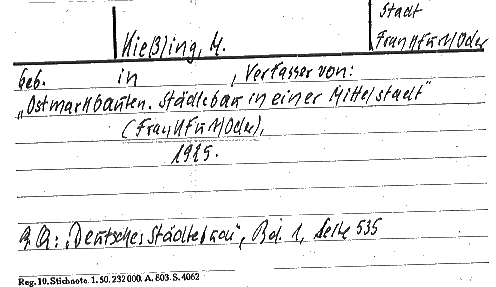 Stadt
Kießling, M. Frankfurt/Oder
geb. in , Verfasser von:
„Ostmarkbauten. Städtebau in einer Mittelstadt"
(Frankfurt/Oder),
1925.
"Deutsches Städtebau", Bd. 1, Seite 535
Reg.10.Stichnote.1.50.232000.A.803.S.4062